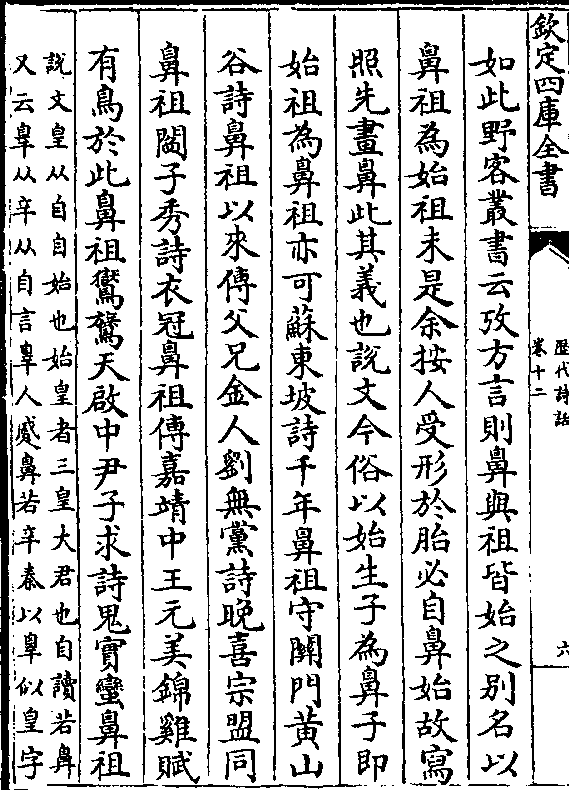 欽定四庫全書
歴代詩話
卷十二
六
如此野客叢書云攷方言則鼻與祖皆始之别名以
鼻祖為始祖未是余按人受形於胎必自鼻始故寫
照先畫鼻此其義也說文今俗以始生子為鼻子即
始祖為鼻祖亦可蘇東坡詩千年鼻祖守關門黄山
谷詩鼻祖以來傳父兄金人劉無黨詩晚喜宗盟同
鼻祖閻子秀詩衣冠鼻祖傳嘉靖中王元美錦雞賦
有鳥於此鼻祖鸑鷟天啟中尹子求詩鬼實蠻鼻祖
說文皇从自自始也始皇者三皇大君也自讀若鼻
又云辠从辛从自言辠人蹙鼻若辛秦以辠似皇字